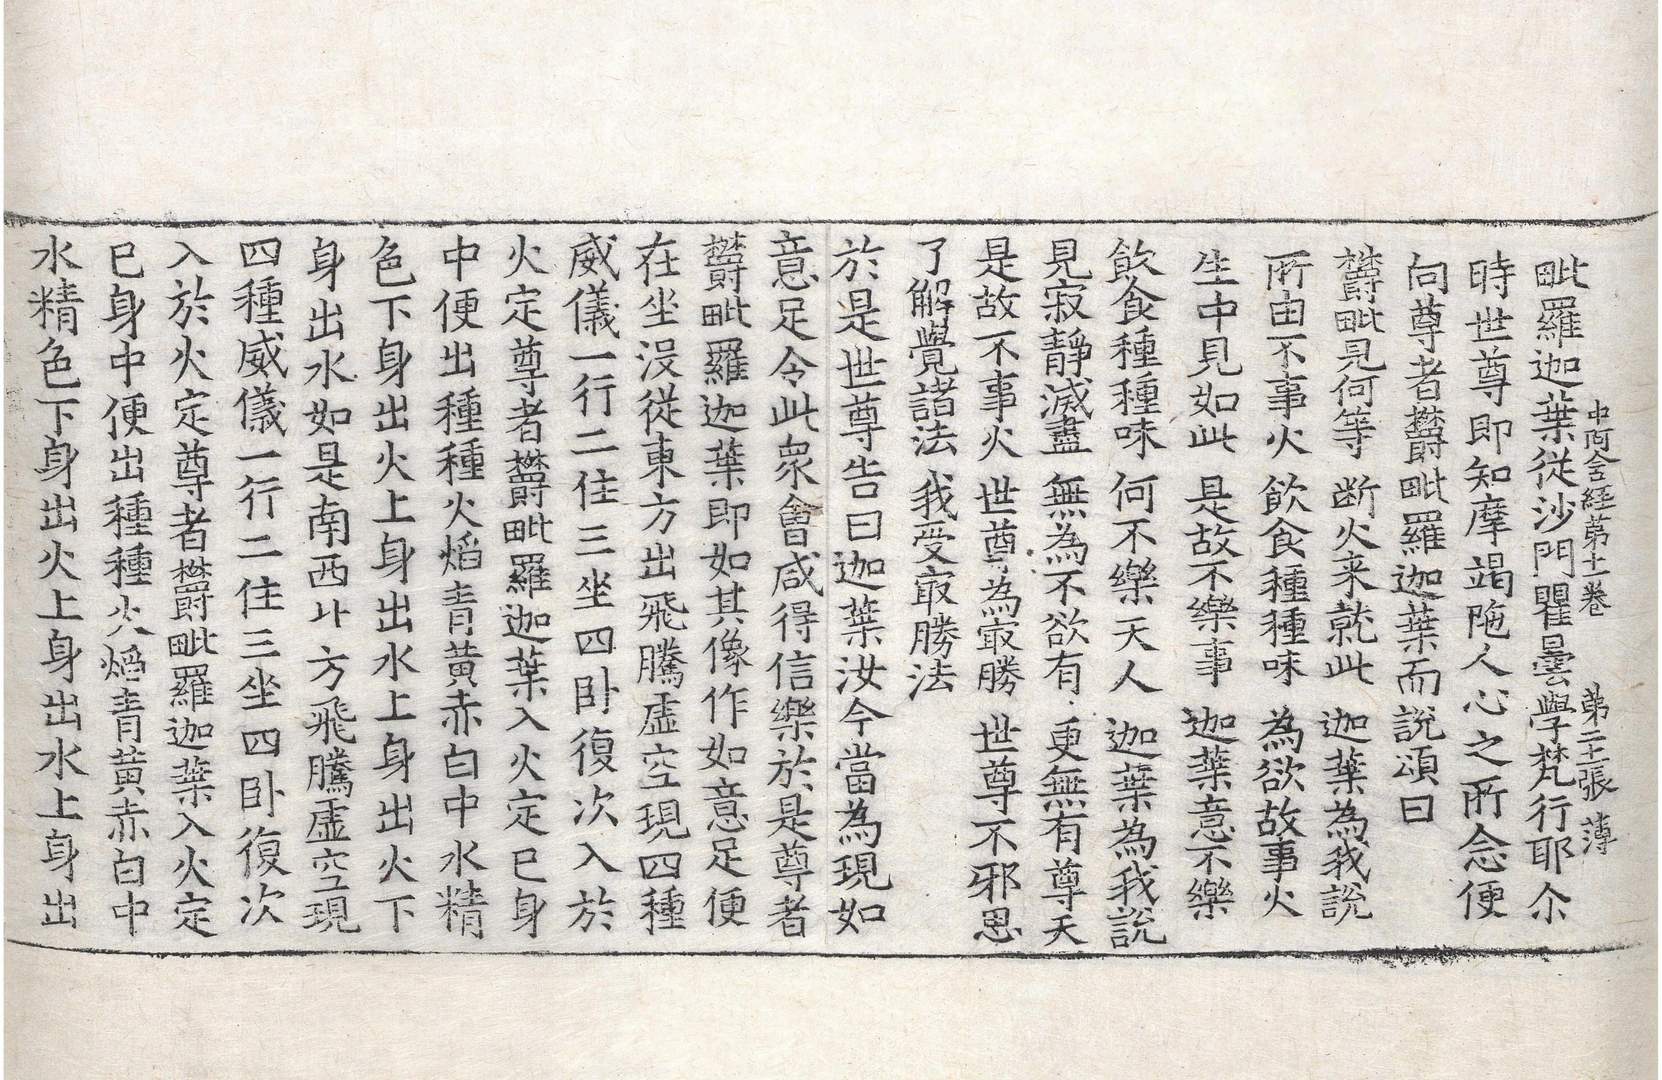 中阿含經第十一卷　第二十一張　薄
毗羅迦葉從沙門瞿曇學梵行耶尒
時世尊即知摩竭陁人心之所念便
向尊者欝毗羅迦葉而說頌曰
欝毗見何等　断火来就此　迦葉為我說
所由不事火　飲食種種味　為欲故事火
生中見如此　是故不樂事　迦葉意不樂
飲食種種味　何不樂天人　迦葉為我說
見寂靜滅盡　無為不欲有　更無有尊天
是故不事火　世尊為㝡勝　世尊不邪思
了解覺諸法　我受㝡勝法
於是世尊告曰迦葉汝今當為現如
意足令此衆會咸得信樂於是尊者
欝毗羅迦葉即如其像作如意足便
在坐没從東方出飛騰虛空現四種
威儀一行二住三坐四卧復次入於
火定尊者欝毗羅迦葉入火定已身
中便出種種火焰青黃赤白中水精
色下身出火上身出水上身出火下
身出水如是南西北方飛騰虛空現
四種威儀一行二住三坐四卧復次
入於火定尊者欝毗羅迦葉入火定
已身中便出種種火焰青黃赤白中
水精色下身出火上身出水上身出